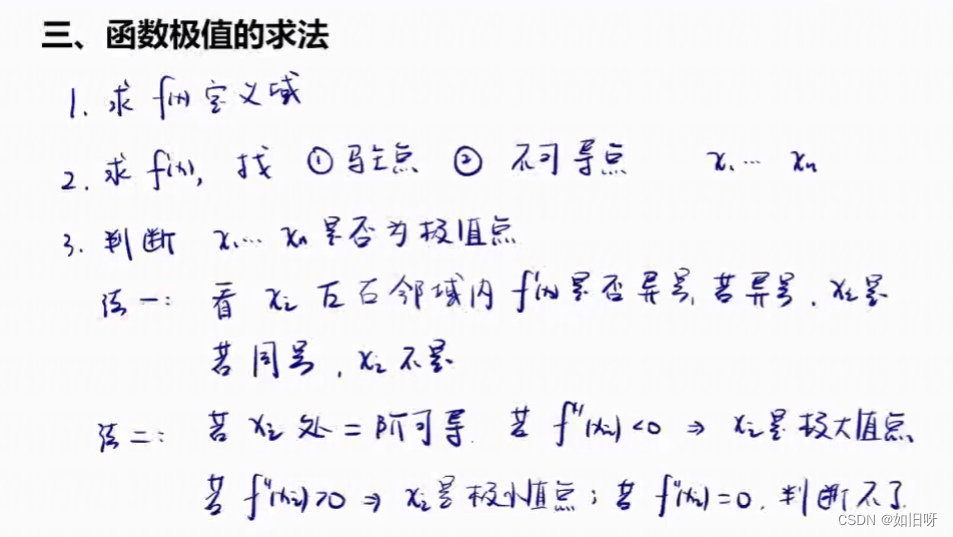 三、函数极值的求法
1. 求 f(x) 定义域
2. 求 f'(x), 找 ① 驻点 ② 不可导点 x₁ … xₙ
3. 判断 x₁ … xₙ 是否为极值点
法一: 看 xᵢ 左右邻域内 f'(x) 是否异号, 若异号, xᵢ是
若同号, xᵢ不是
法二: 若 xᵢ 处二阶可导. 若 f''(xᵢ)<0 ⇒ xᵢ是极大值点
若 f''(xᵢ)>0 ⇒ xᵢ是极小值点; 若 f''(xᵢ)=0, 判断不了
CSDN @如旧呀